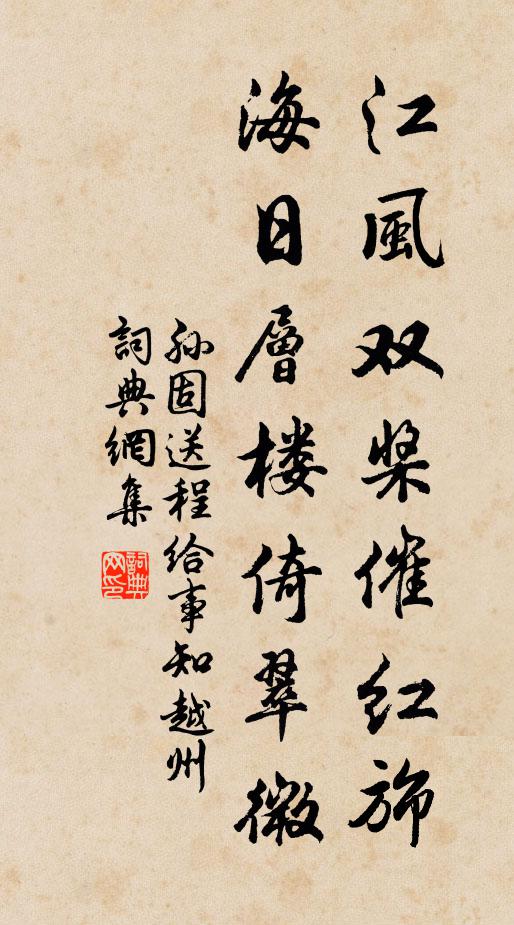 江風双槳催红旆
海日層楼倚翠微
孙固送程给事知越州
詞典網集
詞典网印